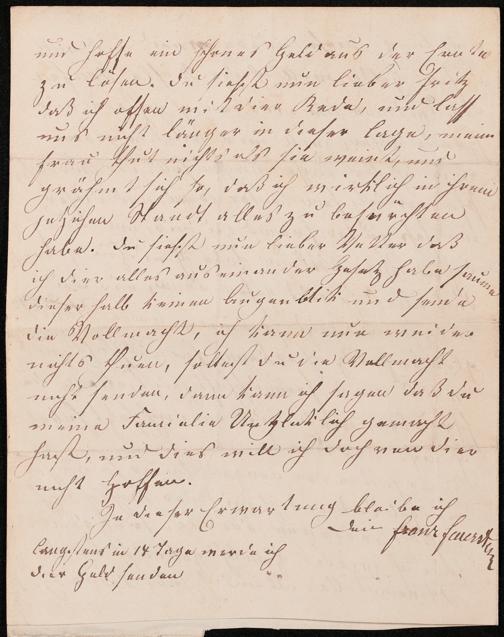 und hoffe ein schönes Geld aus der Erndte
zu lösen. Du siehst nun lieber Fritz
daß ich offen mit dier Rede, nun laß
uns nicht länger in dieser lage, meine
Frau thut nichts als sie weint, und
grähmt sich so, daß ich wirklich in ihrem
jetzichen Stande alles zu befürchten
habe. du siehst nun lieber Vetter daß
ich dier alles auseinander gesetz habe säume
dieser halb keinen augenblik und sende
die Vollmacht, ich kann nun weider
nichts thuen, soltest du die Vollmacht
nicht senden, dann kann ich sagen daß du
meine Familie Unglüklich gemacht
hast, und dies will ich doch von dier
nicht hoffen.
In dieser Erwartung bleibe ich
dein Franz
Längstens in 14 Tage werde ich
dier Geld senden